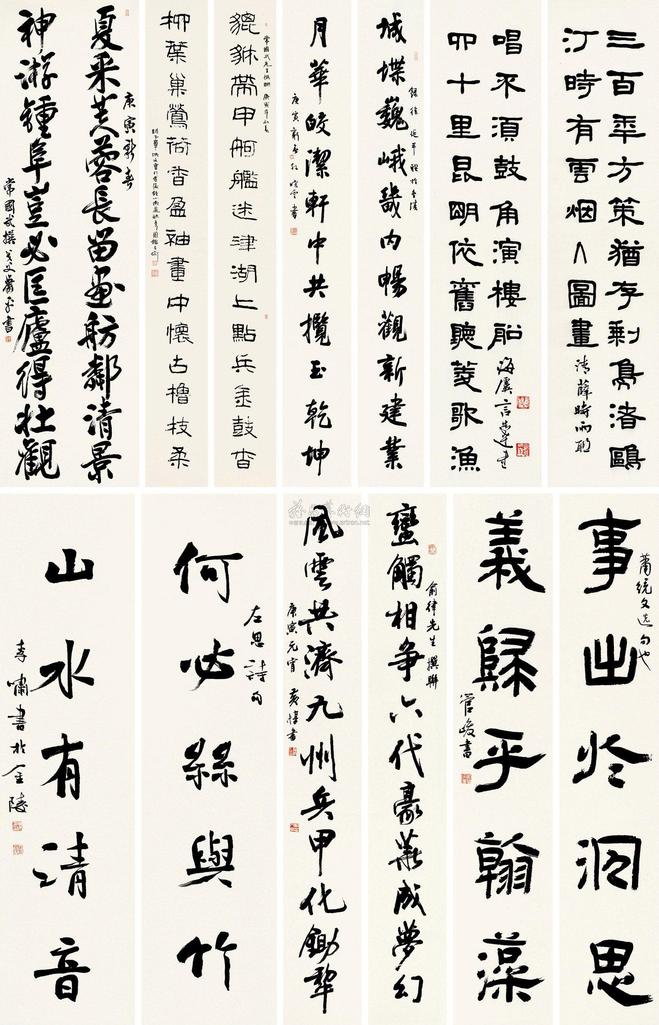 三百年方策猶存剩鳧渚鷗
汀時有雲烟入圖畫
清薛時雨聯
四十里昆明依舊聽菱歌漁
唱不須鼓角演樓船
海虞言恭達書
城堞巍峨畿內暢觀新建業
月華皎潔軒中共攬玉乾坤
貔貅帶甲舸艦迷津湖上點兵金鼓杳
柳葉巢鶯荷香盈袖畫中懷古櫓枝柔
夏采芙蓉長留畫舫鄰清景
庚寅新春
神游鍾阜豈必匡廬得壯觀
常國武撰
事出於沉思
蕭統文選句也
義歸乎翰藻
管峻書
蠻觸相爭六代豪華成夢幻
俞律先生撰聯
風雲共濟九州兵甲化鋤犁
庚寅元宵 黃惇書
何必絲與竹
左思詩句
山水有清音
李嘯書於金陵